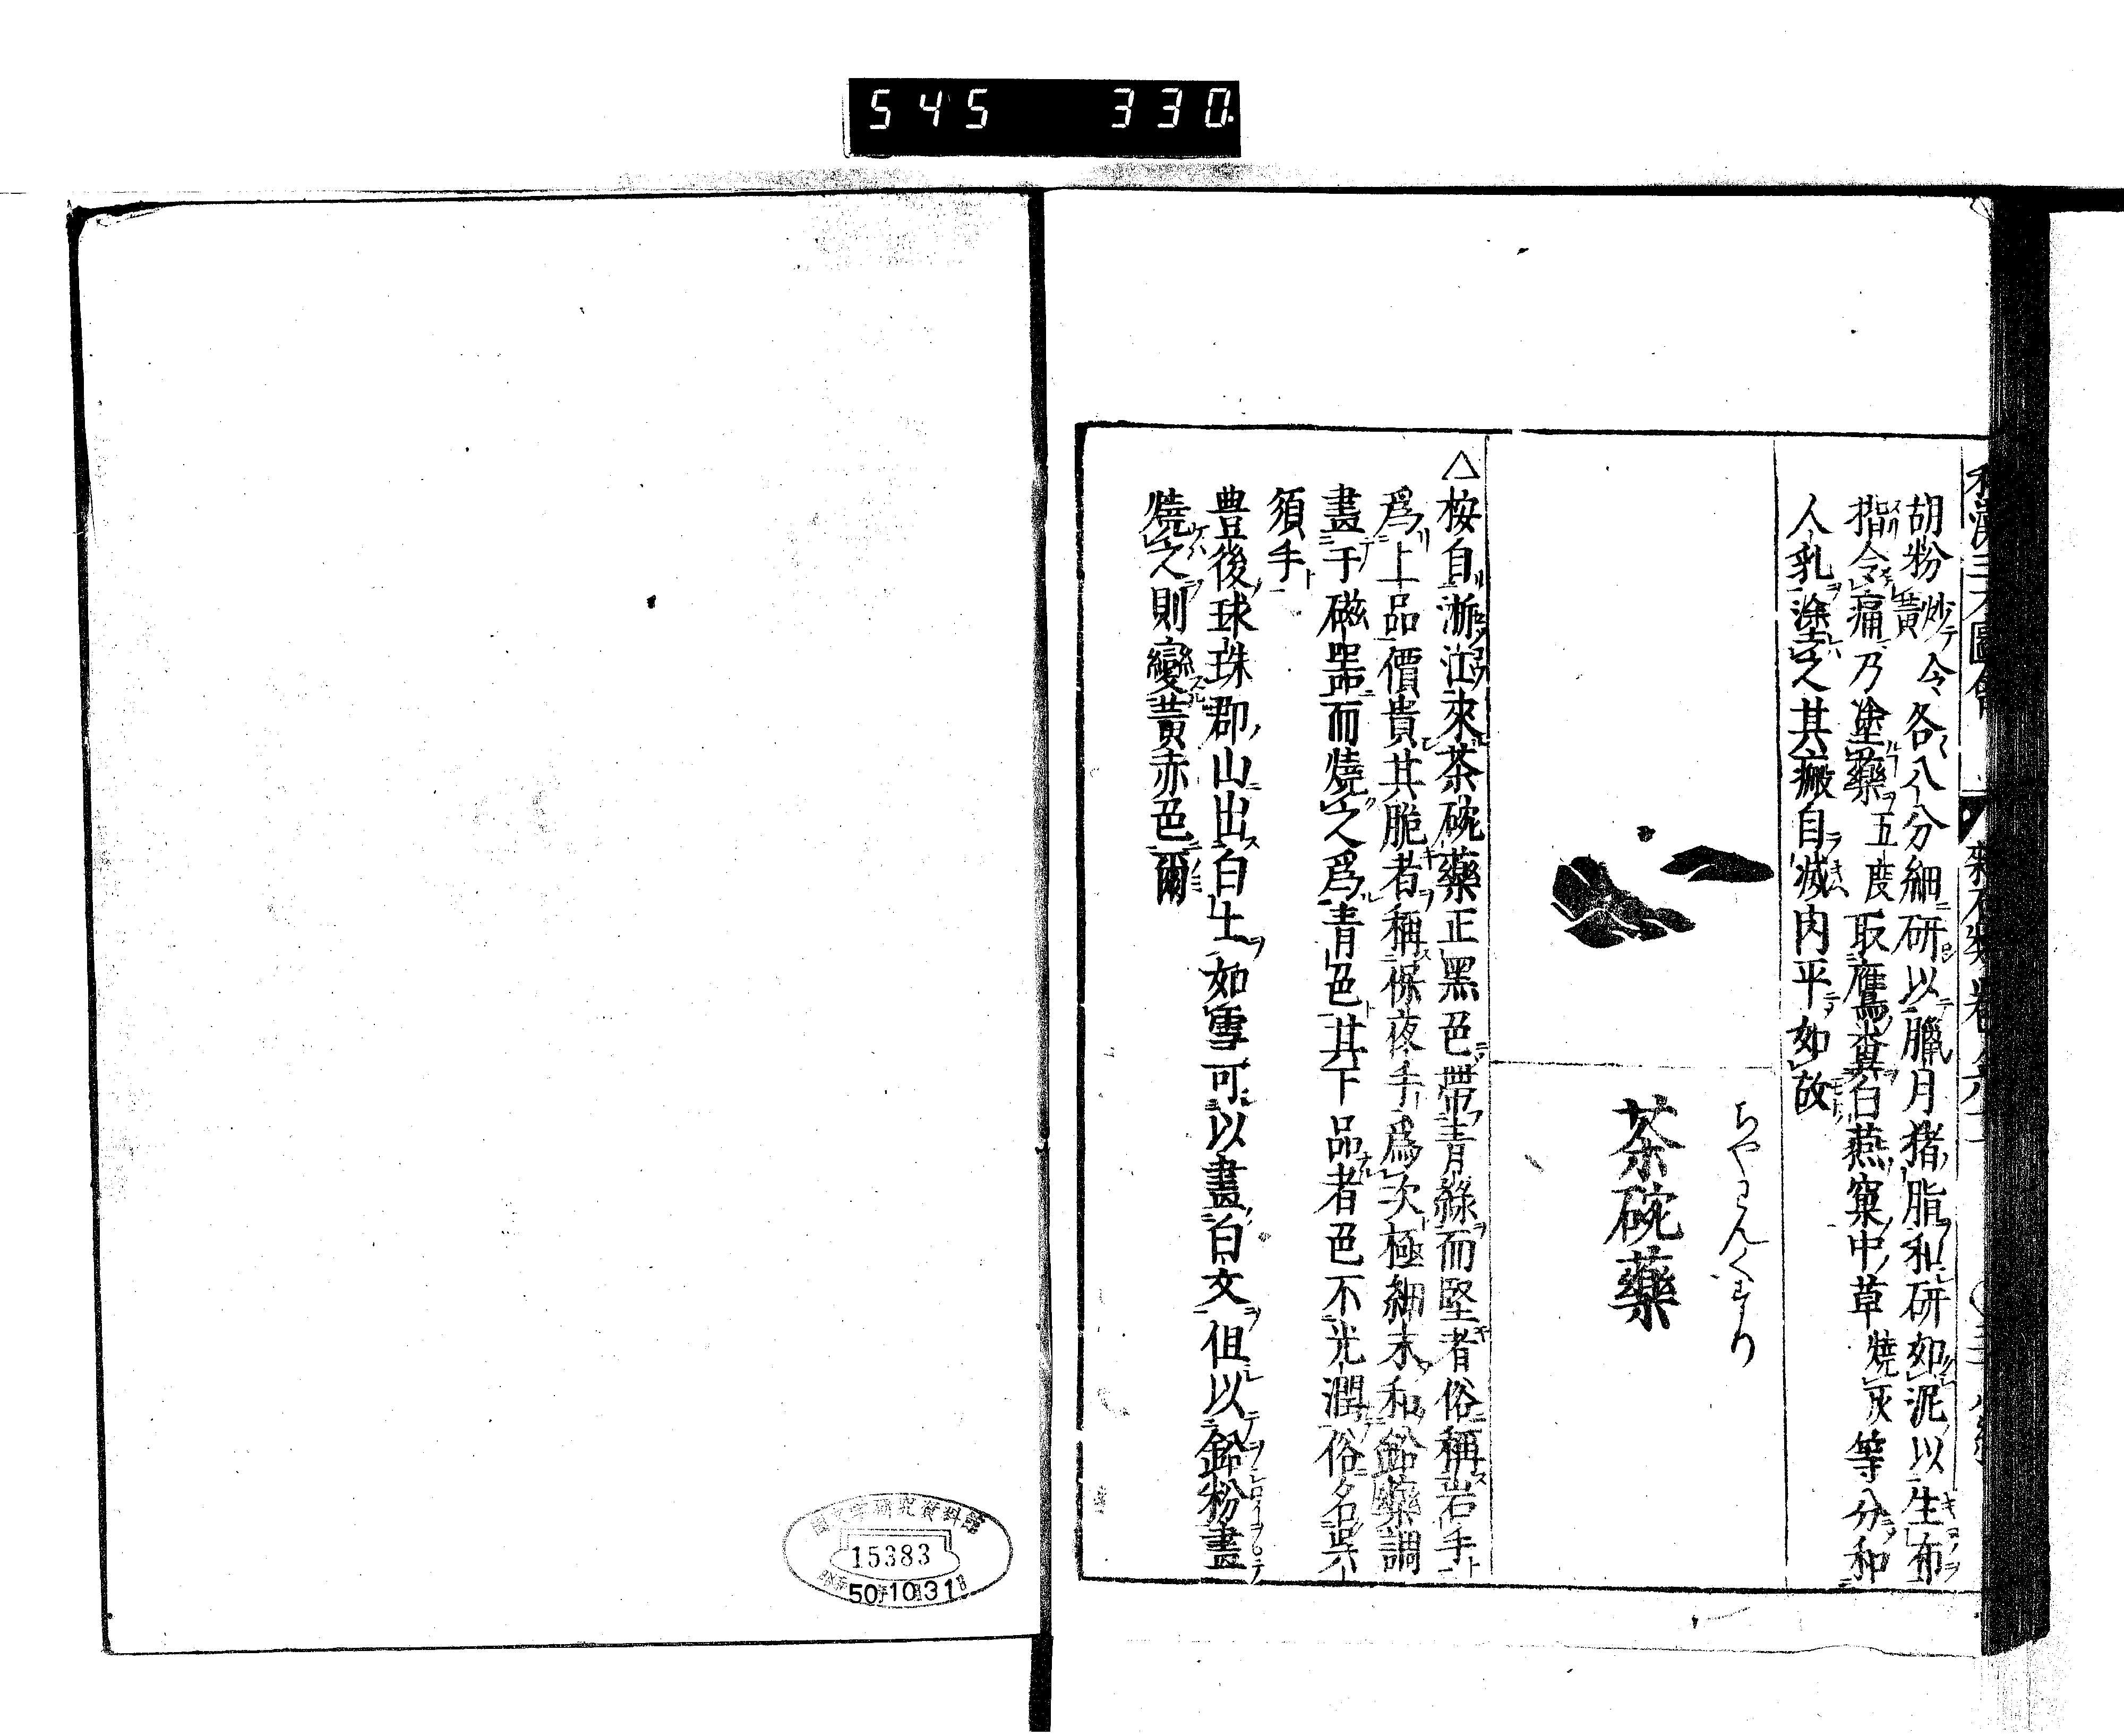 545 330
胡粉炒令黄各八分細研以臘月猪脂和研如泥以生布
揩令痛乃塗藥五度取鷹糞白燕窠中草燒灰等分和
人乳塗之其瘢自滅肉平如故
ちやわんくすり
茶碗藥
△桉自浙江來茶碗藥正黑色帶青綠而堅者俗稱岩手
爲上品價貴其脆者稱保夜手爲次極細末和鉛藥調
畫于磁噐而燒之爲青色其下品者色不光潤俗名吳
須手
豊後球珠郡山出白土如雪可以畫白文但以鉛粉畫
燒之則變黃赤色爾
國文学研究資料館
15383
50.10.31